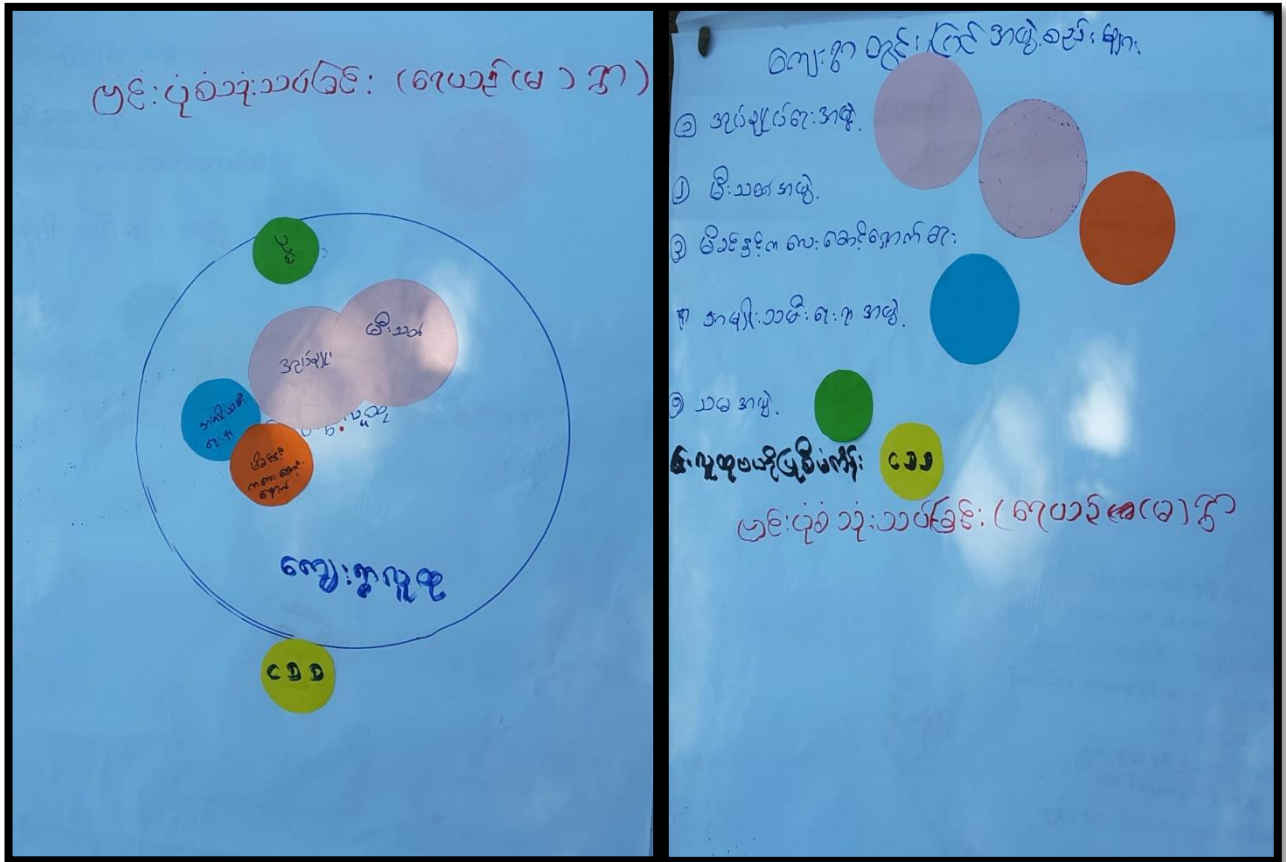 ဗင်းပုံစံသုံးသပ်ခြင်း (ရေယဉ်(မ)ရွာ)
မီးသတ်
အုပ်ချုပ်
အမျိုးသမီး
ရေးရာ
မိခင်နှင့်
ကလေးစောင့်
ရှောက်
ကျေးရွာလူထု
CDD
ကျေးရွာတွင်းရှိ အဖွဲ့အစည်းများ
၁ အုပ်ချုပ်ရေးအဖွဲ့
၂ မီးသတ်အဖွဲ့
၃ မိခင်နှင့်ကလေးစောင့်ရှောက်ရေး
၄ အမျိုးသမီးရေးရာအဖွဲ့
၅ သမအဖွဲ့
လူထုဗဟိုပြုစီမံကိန်း CDD
ဗင်းပုံစံသုံးသပ်ခြင်း (ရေယဉ်(မ)ရွာ